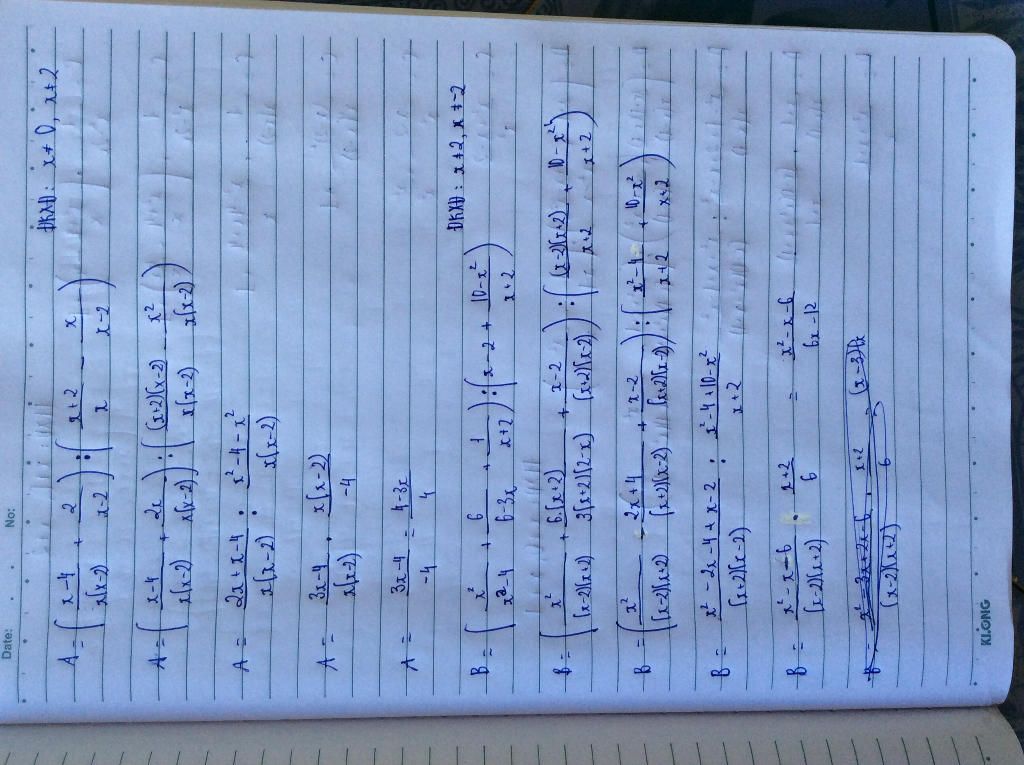 Date: No:
ĐKXĐ: x ≠ 0, x ≠ 2
A = ( (x-4)/(x(x-2)) + 2/(x-2) ) : ( (x+2)/x - x/(x-2) )
A = ( (x-4)/(x(x-2)) + 2x/(x(x-2)) ) : ( ((x+2)(x-2))/(x(x-2)) - x²/(x(x-2)) )
A = (2x+x-4)/(x(x-2)) : (x²-4-x²)/(x(x-2))
A = (3x-4)/(x(x-2)) . (x(x-2))/(-4)
A = (3x-4)/(-4) = (4-3x)/4
ĐKXĐ: x ≠ 2, x ≠ -2
B = ( x²/(x²-4) + 6/(6-3x) + 1/(x+2) ) : ( x-2 + (10-x²)/(x+2) )
B = ( x²/((x-2)(x+2)) + (6.(x+2))/(3(x+2)(2-x)) + (x-2)/((x+2)(x-2)) ) : ( ((x-2)(x+2))/(x+2) + (10-x²)/(x+2) )
B = ( x²/((x-2)(x+2)) - (2x+4)/((x+2)(x-2)) + (x-2)/((x+2)(x-2)) ) : ( (x²-4)/(x+2) + (10-x²)/(x+2) )
B = (x²-2x-4+x-2)/((x+2)(x-2)) : (x²-4+10-x²)/(x+2)
B = (x²-x-6)/((x-2)(x+2)) . (x+2)/6 = (x²-x-6)/(6x-12)
KLONG